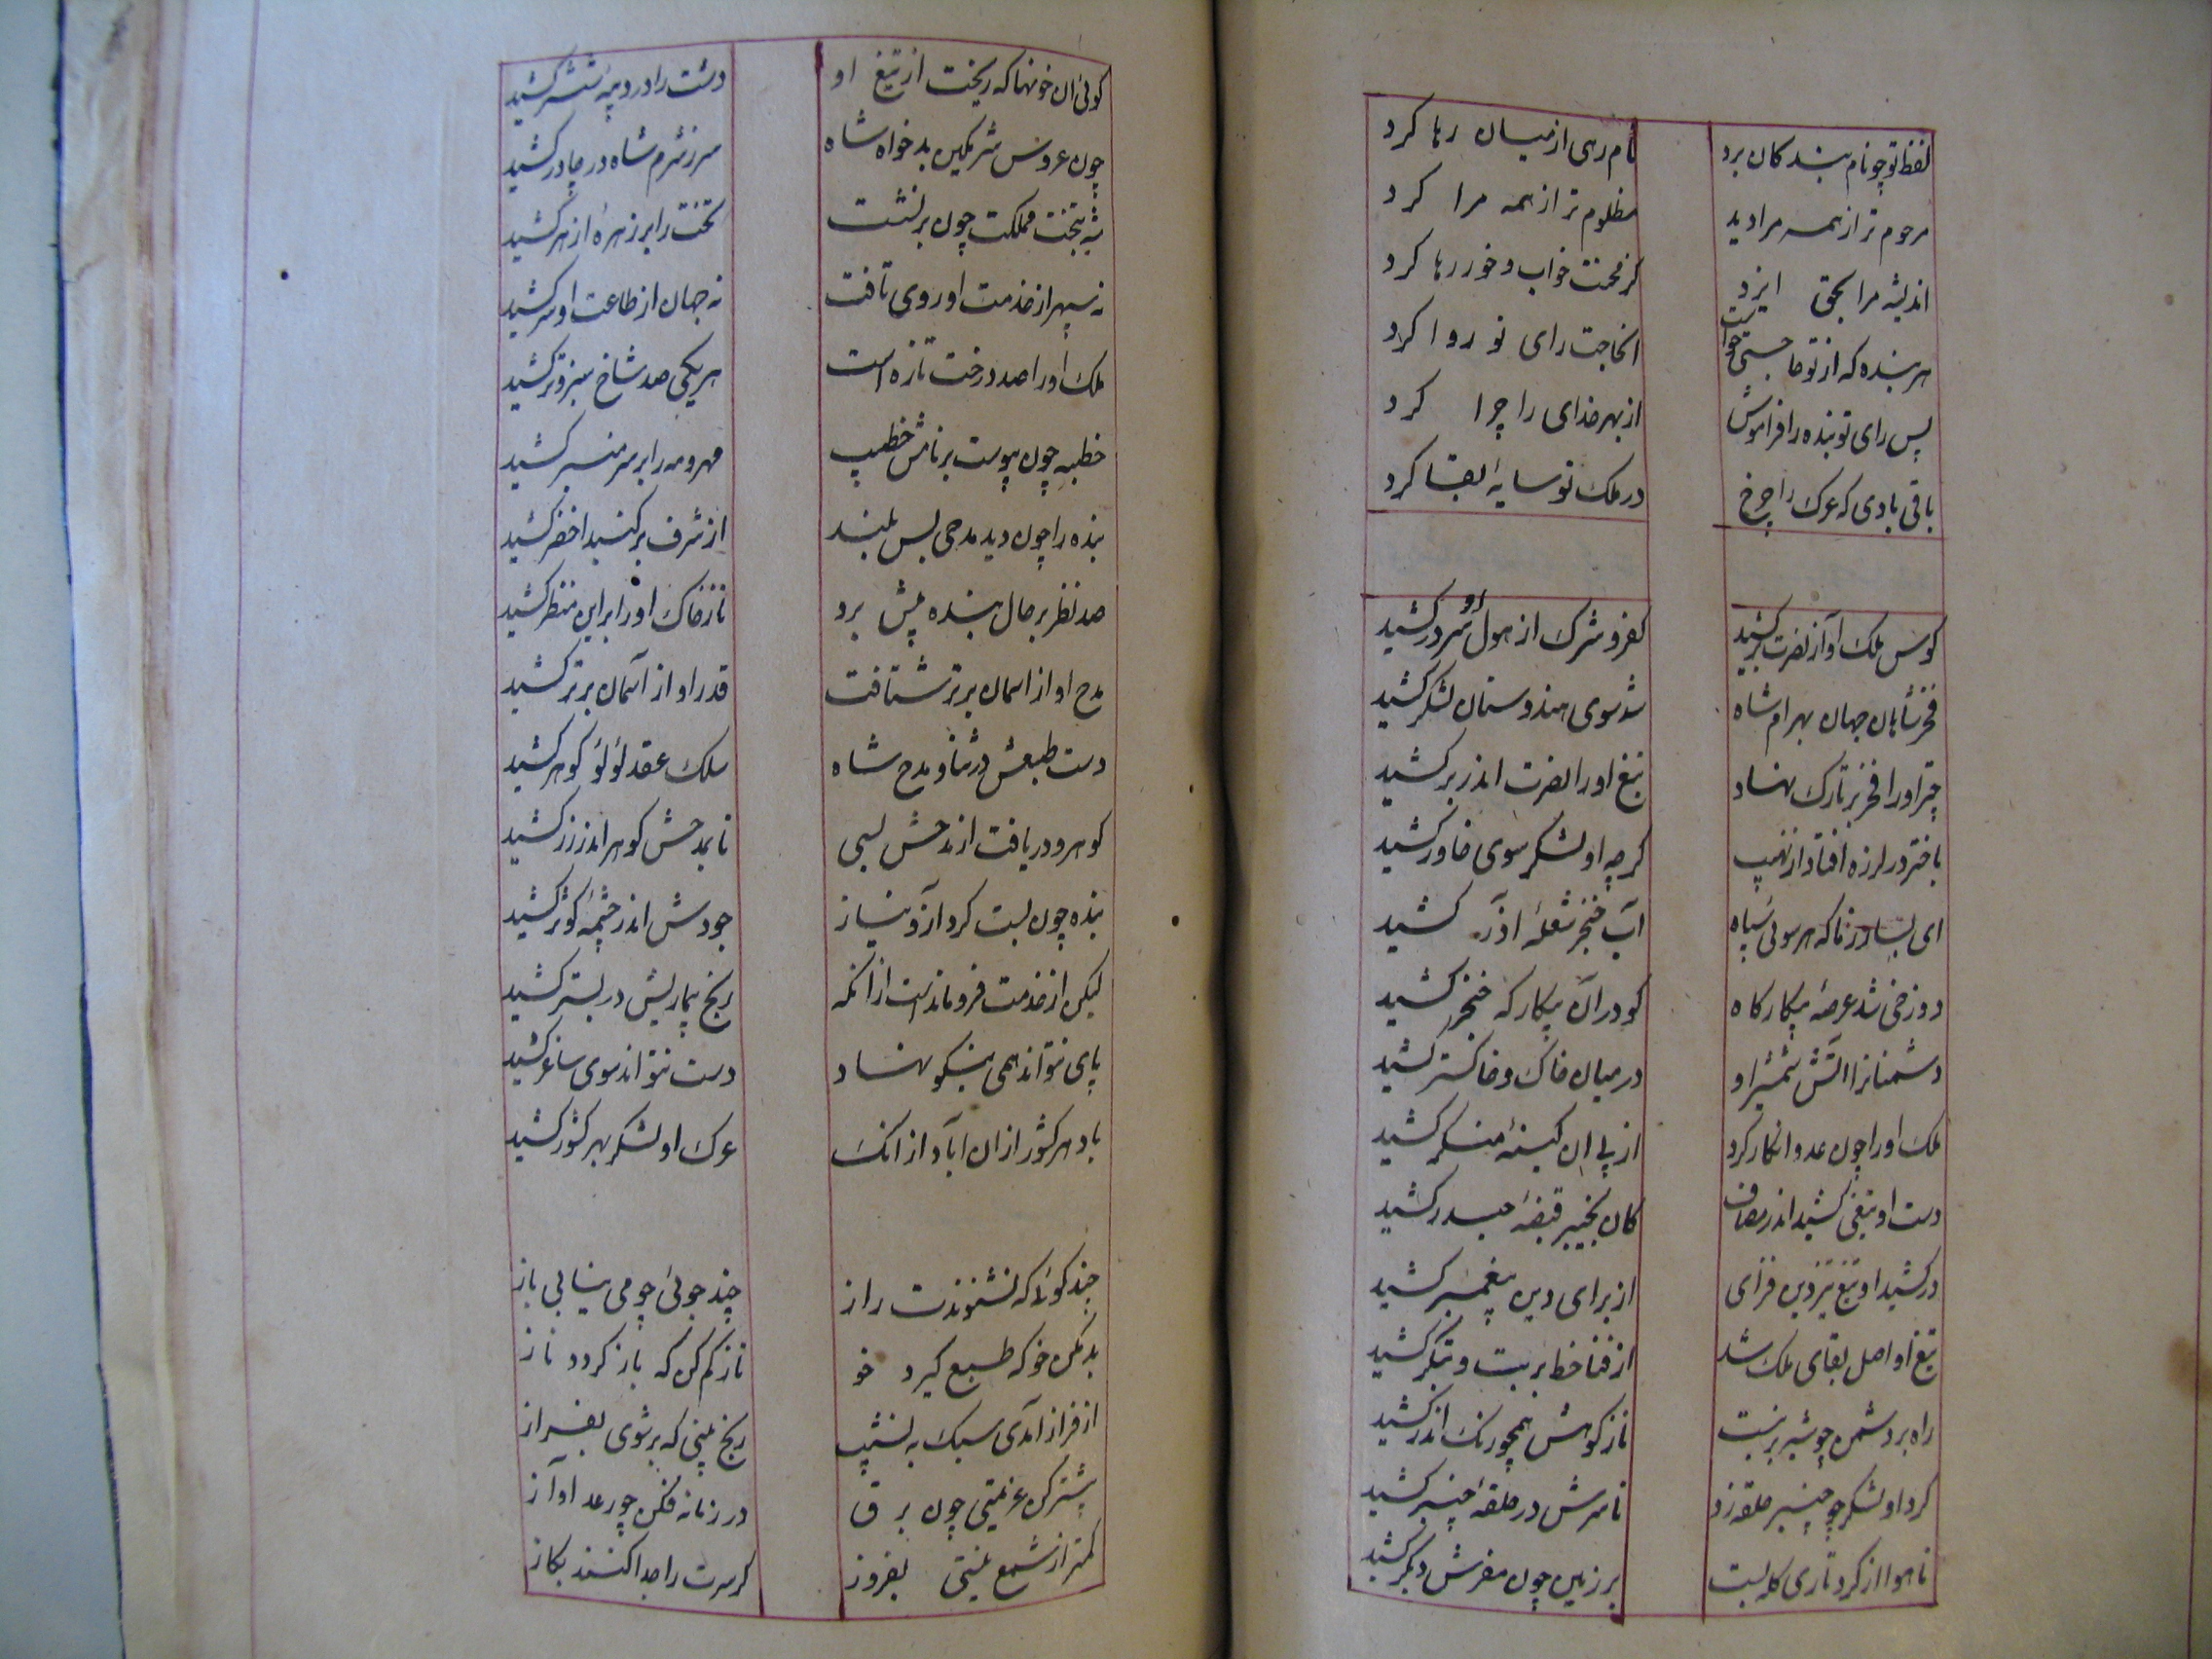 لفظ تو چو نام بندکان برد نام رهی از میان رها کرد
مرحوم تر از همه مرا دید مظلوم تر از همه مرا کرد
اندیشه مرا بحق ایزد کز محنت خواب و خور رها کرد
هر بنده که از تو حاجتی خواست انحاجت رای تو روا کرد
پس رای تو بنده را فراموش از بهر خدای را چرا کرد
باقی بادی که عدلت را چرخ در ملک تو سایهٔ بقا کرد
کوس ملک آواز نصرت برکشید کفر و شرک از هول او سر درکشید
فخر شاهان جهان بهرام شاه شد سوی هندوستان لشکر کشید
چتر او را فخر بر تارک نهاد تیغ او را نصرت اندر بر کشید
باختر در لرزه افتاد از نهیب کرچه او لشکر سوی خاور کشید
ای بسا رزما که هر سوئی سپاه آب خنجر شعلهٔ آذر کشید
دوزخی شد عرصهٔ پیکار کاه کو دران پیکار که خنجر کشید
دشمنانرا آتش شمشیر او در میان خاک و خاکستر کشید
ملک او را چون عدو انکار کرد از پی ان کینهٔ منکر کشید
دست او تیغی کشید اندر مصاف کان بخیبر قبضهٔ حیدر کشید
درکشید او تیغ تیز دین فزای از برای دین پیغمبر کشید
تیغ او اصل بقای ملک شد از فنا خط بر بت و بتکر کشید
راه بر دشمن چو شیر نر ببست تا ز کوهش همچو رنک اندر کشید
کرد او لشکر چو چنبر حلقه زد تا سرش در حلقهٔ چنبر کشید
تا هوا از کرد تاری کله بست بر زمین چون مفرش دیکر کشید
کوئی ان خونها که ریخت از تیغ او دشت را در دیبهٔ ششتر کشید
چون عروس شرمکین بدخواه شاه سر ز شرم شاه در چادر کشید
شه بتخت مملکت چون برنشت تخت را بر زهرهٔ ازهر کشید
نه سپهر از خدمت او روی تافت نه جهان از طاعت او سر کشید
ملک او را صد درخت تازه است هر یکی صد شاخ سبز و تر کشید
خطبه چون پیوست بر نامش خطیب مهر و مه را بر سر منبر کشید
بنده را چون دید مدحی بس بلند از شرف بر کنبد اخضر کشید
صد نظر بر حال بنده پیش برد تا ز خاک او را بر این منظر کشید
مدح او از اسمان برتر شتافت قدر او از آسمان برتر کشید
دست طبعش در ثنا و مدح شاه سلک عقد لؤلؤ کوهر کشید
کوهر و در یافت از مدحش بسی تا بمدحش کوهر اندر زر کشید
بنده چون لبت کرد آز و نیاز جودش اندر چشمهٔ کوثر کشید
لیکن از خدمت فرو ماندست ازانکه رنج بیماریش در بستر کشید
پای نتواند همی نیکو نهاد دست نتواند سوی ساغر کشید
باد هر کشور ازان آباد ازانک عدلت او لشکر بهر کشور کشید
چند کوئی که نشنودندت راز چند جوئی چو می نیابی باز
بد مکن خو که طبع کیرد خو ناز کم کن که باز کردد ناز
از فراز امدی سبک به نشیب رنج بینی که بر شوی بفراز
بیشتر کن عزیمتی چون برق در زمانه فکن چو رعد آواز
کمتر از شمع نیستی بفروز کر سرت را جدا کنند بکاز